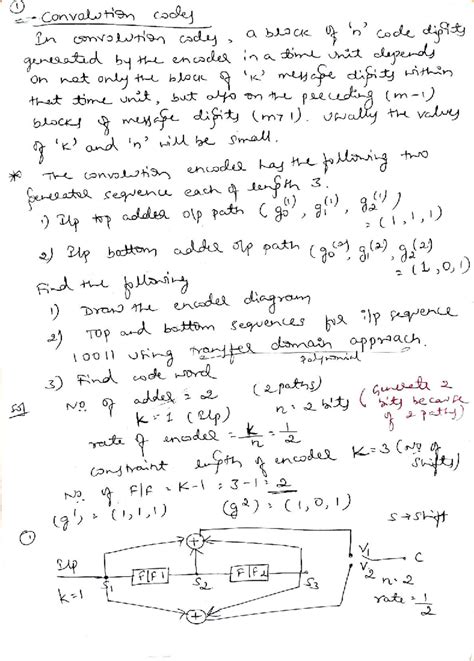 ① Convolution codes
In convolution codes, a block of 'n' code digits
generated by the encoder in a time unit depends
on not only the block of 'k' message digits within
that time unit, but also on the preceding (m-1)
blocks of message digits (m>1). Usually the values
of 'k' and 'n' will be small.
* The convolution encoder has the following two
generator sequence each of length 3.
1) I/p top adder o/p path (g0^(1), g1^(1), g2^(1))
= (1, 1, 1)
2) I/p bottom adder o/p path (g0^(2), g1^(2), g2^(2))
= (1, 0, 1)
Find the following
1) Draw the encoder diagram
2) Top and bottom sequences for i/p sequence
10011 using transfer domain approach.
polynomial
3) Find code word
Sol No. of adder = 2 (2 paths)
k = 1 (I/p) n = 2 bits (Generate 2 bits because of 2 paths)
rate of encoder = k/n = 1/2
constraint length of encoder K = 3 (No. of shifts)
No. of F/F = K-1 = 3-1 = 2
(g1) = (1, 1, 1) (g2) = (1, 0, 1)
S → Shift
①
I/p
k=1
S1
F/F1
S2
F/F2
S3
+
+
V1
V2
C
n = 2
rate = 1/2